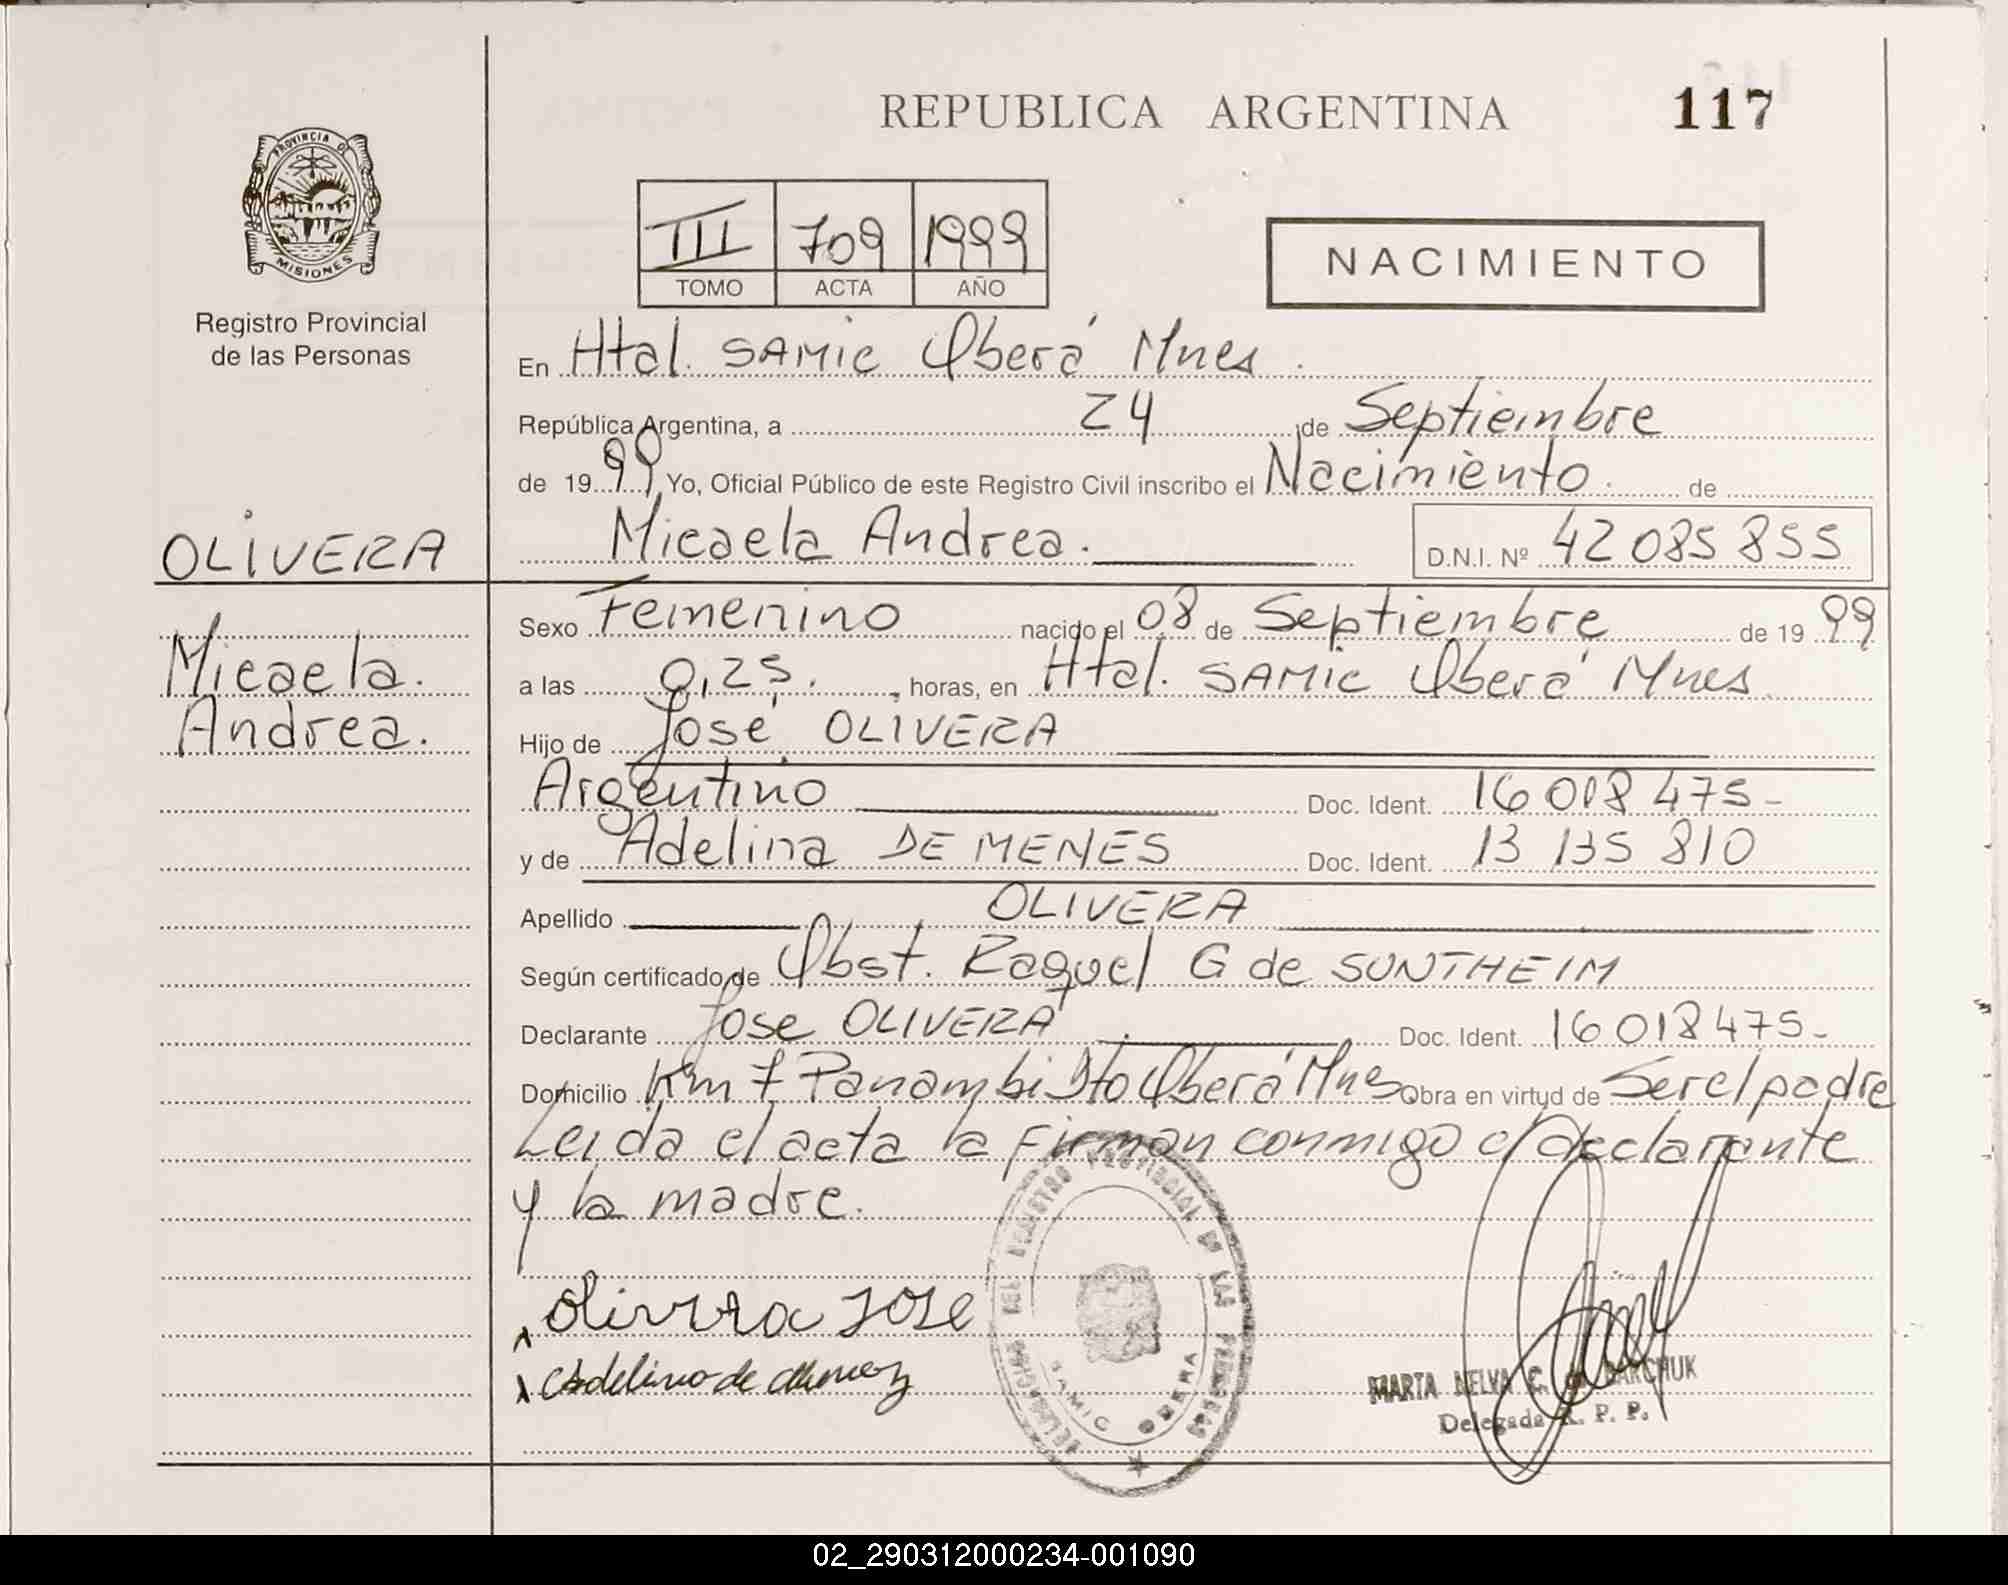 REPUBLICA ARGENTINA
117
PROVINCIA DE
MISIONES
Registro Provincial
de las Personas
III 709 1999
TOMO ACTA AÑO
NACIMIENTO
En Htal. SAMIC Oberá Mnes.
República Argentina, a 24 de Septiembre
de 1999 Yo, Oficial Público de este Registro Civil inscribo el Nacimiento. de
OLIVERA
Micaela Andrea. D.N.I. Nº 42 085 855
Micaela.
Andrea.
Sexo Femenino nacido el 08 de Septiembre de 1999
a las 0,25. , horas, en Htal. SAMIC Oberá Mnes.
Hijo de José OLIVERA
Argentino Doc. Ident. 16 018 475-
y de Adelina DE MENES Doc. Ident. 13 135 810
Apellido OLIVERA
Según certificado de Obst. Raquel G de SUNTHEIM
Declarante Jose OLIVERA Doc. Ident. 16 018 475-
Domicilio Km 7 Panambi Dto Oberá Mnes Obra en virtud de Ser el padre
Leida el acta la firman conmigo el declarante
y la madre.
x Olivera JOSE
x Adelina de Menez
REGISTRO PROVINCIAL DE LAS PERSONAS
SAMIC OBERA
MARTA NELVA C. de BARCHUK
Delegada R. P. P.
02_290312000234-001090